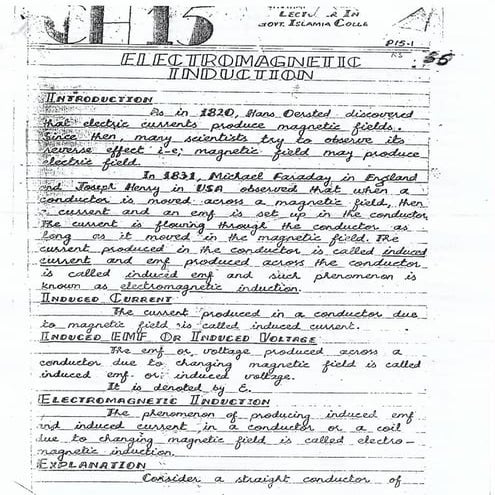 CH 15
LECTURER IN
GOVT. ISLAMIA COLLE
P15-1
RS
55
ELECTROMAGNETIC
INDUCTION
INTRODUCTION
As in 1820, Hans Oersted discovered
that electric currents produce magnetic fields.
Since then, many scientists try to observe its
reverse effect i-e; magnetic field may produce
electric field.
In 1831, Michael Faraday in England
and Joseph Henry in USA observed that when a
conductor is moved across a magnetic field, then
a current and an emf is set up in the conductor.
The current is flowing through the conductor as
long as it moved in the magnetic field. The
current produced in the conductor is called induced
current and emf produced across the conductor
is called induced emf and such phenomenon is
known as electromagnetic induction.
INDUCED CURRENT
The current produced in a conductor due
to magnetic field is called induced current.
INDUCED EMF OR INDUCED VOLTAGE
The emf or voltage produced across a
conductor due to changing magnetic field is called
induced emf or induced voltage.
It is denoted by ε.
ELECTROMAGNETIC INDUCTION
The phenomenon of producing induced emf
and induced current in a conductor or a coil
due to changing magnetic field is called electro-
magnetic induction.
EXPLANATION
Consider a straight conductor of